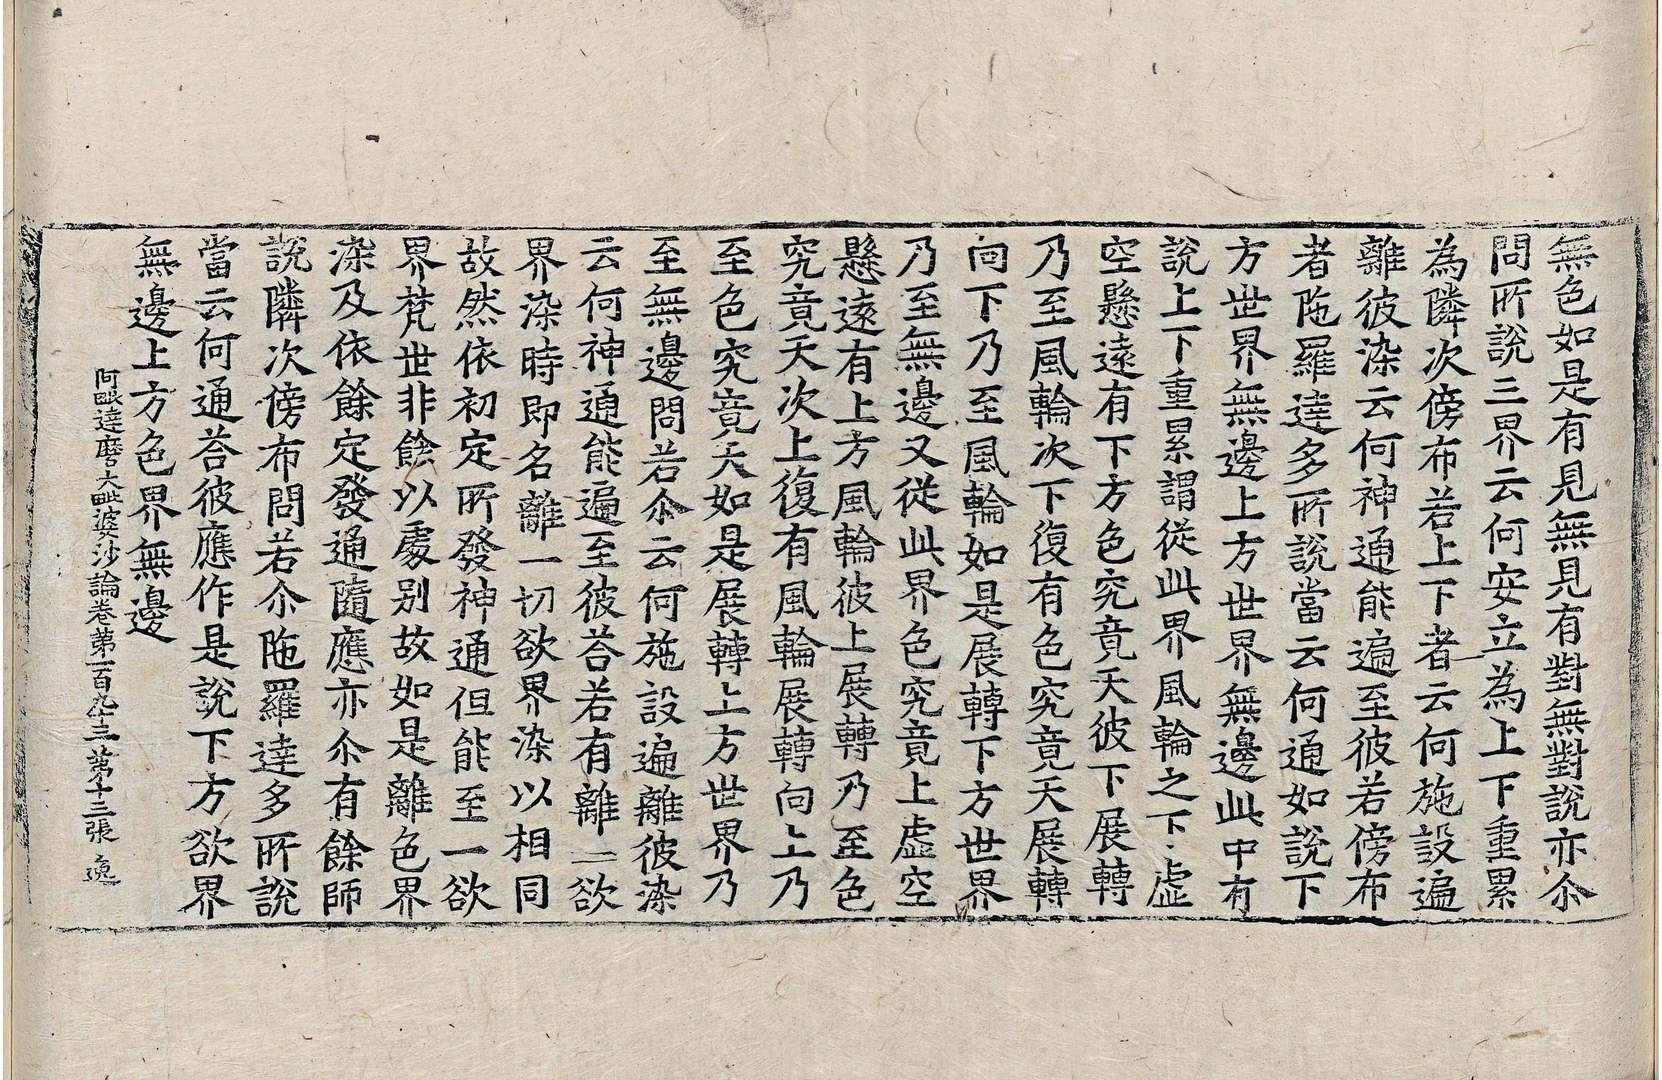 無色如是有見無見有對無對說亦尒
問所說三界云何安立為上下重累
為隣次傍布若上下者云何施設遍
離彼染云何神通能遍至彼若傍布
者陁羅達多所說當云何通如說下
方世界無邊上方世界無邊此中有
說上下重累謂從此界風輪之下虛
空懸遠有下方色究竟天彼下展轉
乃至風輪次下復有色究竟天展轉
向下乃至風輪如是展轉下方世界
乃至無邊又從此界色究竟上虛空
懸遠有上方風輪彼上展轉乃至色
究竟天次上復有風輪展轉向上乃
至色究竟天如是展轉上方世界乃
至無邊問若尒云何施設遍離彼染
云何神通能遍至彼荅若有離一欲
界染時即名離一切欲界染以相同
故然依初定所發神通但能至一欲
界梵世非餘以處別故如是離色界
染及依餘定發通隨應亦尒有餘師
說隣次傍布問若尒陁羅達多所說
當云何通荅彼應作是說下方欲界
無邊上方色界無邊
阿毗達磨大毗婆沙論卷第一百九十三 第十三張 逸